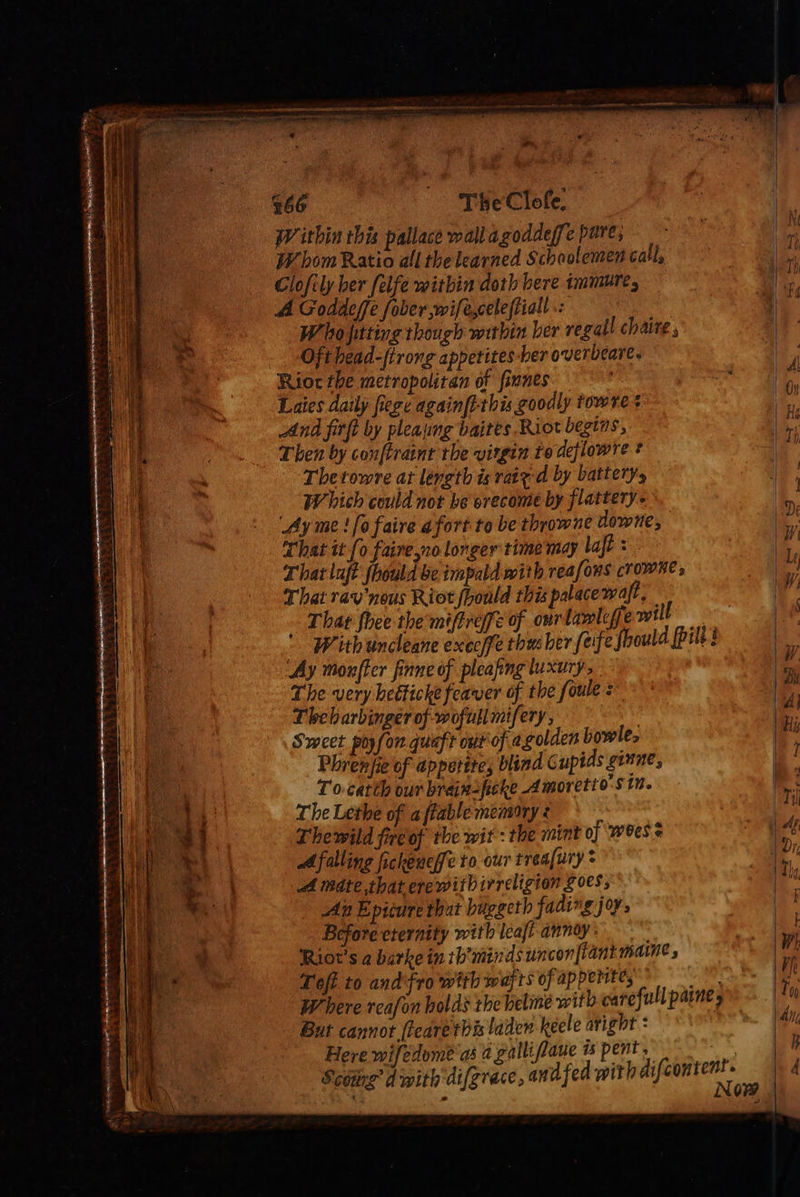 166 The Close.
Within this pallace wall a goddesse pure,
Whom Ratio all the learned Schoolemen call,
Closely her selfe within doth here immure,
A Goddesse sober, wise, celestiall :
Who sitting though within her regall chaire,
Oft head-strong appetites her overbeare.
Riot the metropolitan of sinnes
Laies daily siege against this goodly towre :
And first by pleasing baites Riot begins,
Then by constraint the virgin to deflowre :
The towre at length is raiz'd by battery,
Which could not be orecome by flattery.
Ay me ! so faire a fort to be throwne downe,
That it so faire, no longer time may last :
That lust should be impald with reasons crowne,
That rav'nous Riot should this palace wast,
That shee the mistresse of our lawlesse will
With uncleane excesse thus her selfe should spill !
Ay monster sinne of pleasing luxury,
The very hecticke feaver of the soule :
The harbinger of wofull misery,
Sweet poyson quaft out of a golden bowle,
Phrensie of appetite, blind Cupids ginne,
To catch our brain-sicke Amoretto's in.
The Lethe of a stable memory :
The wild fire of the wit : the mint of woes :
A falling sickenesse to our treasury :
A mate, that erewith irreligion goes,
An Epicure that huggeth fading joy,
Before eternity with least annoy.
Riot's a barke in th'minds unconstant maine,
Tost to and fro with wafts of appetite,
Where reason holds the helme with carefull paine,
But cannot steare this laden keele aright :
Here wisedome as a galli slaue is pent,
Scourg'd with disgrace, and fed with discontent.
Now